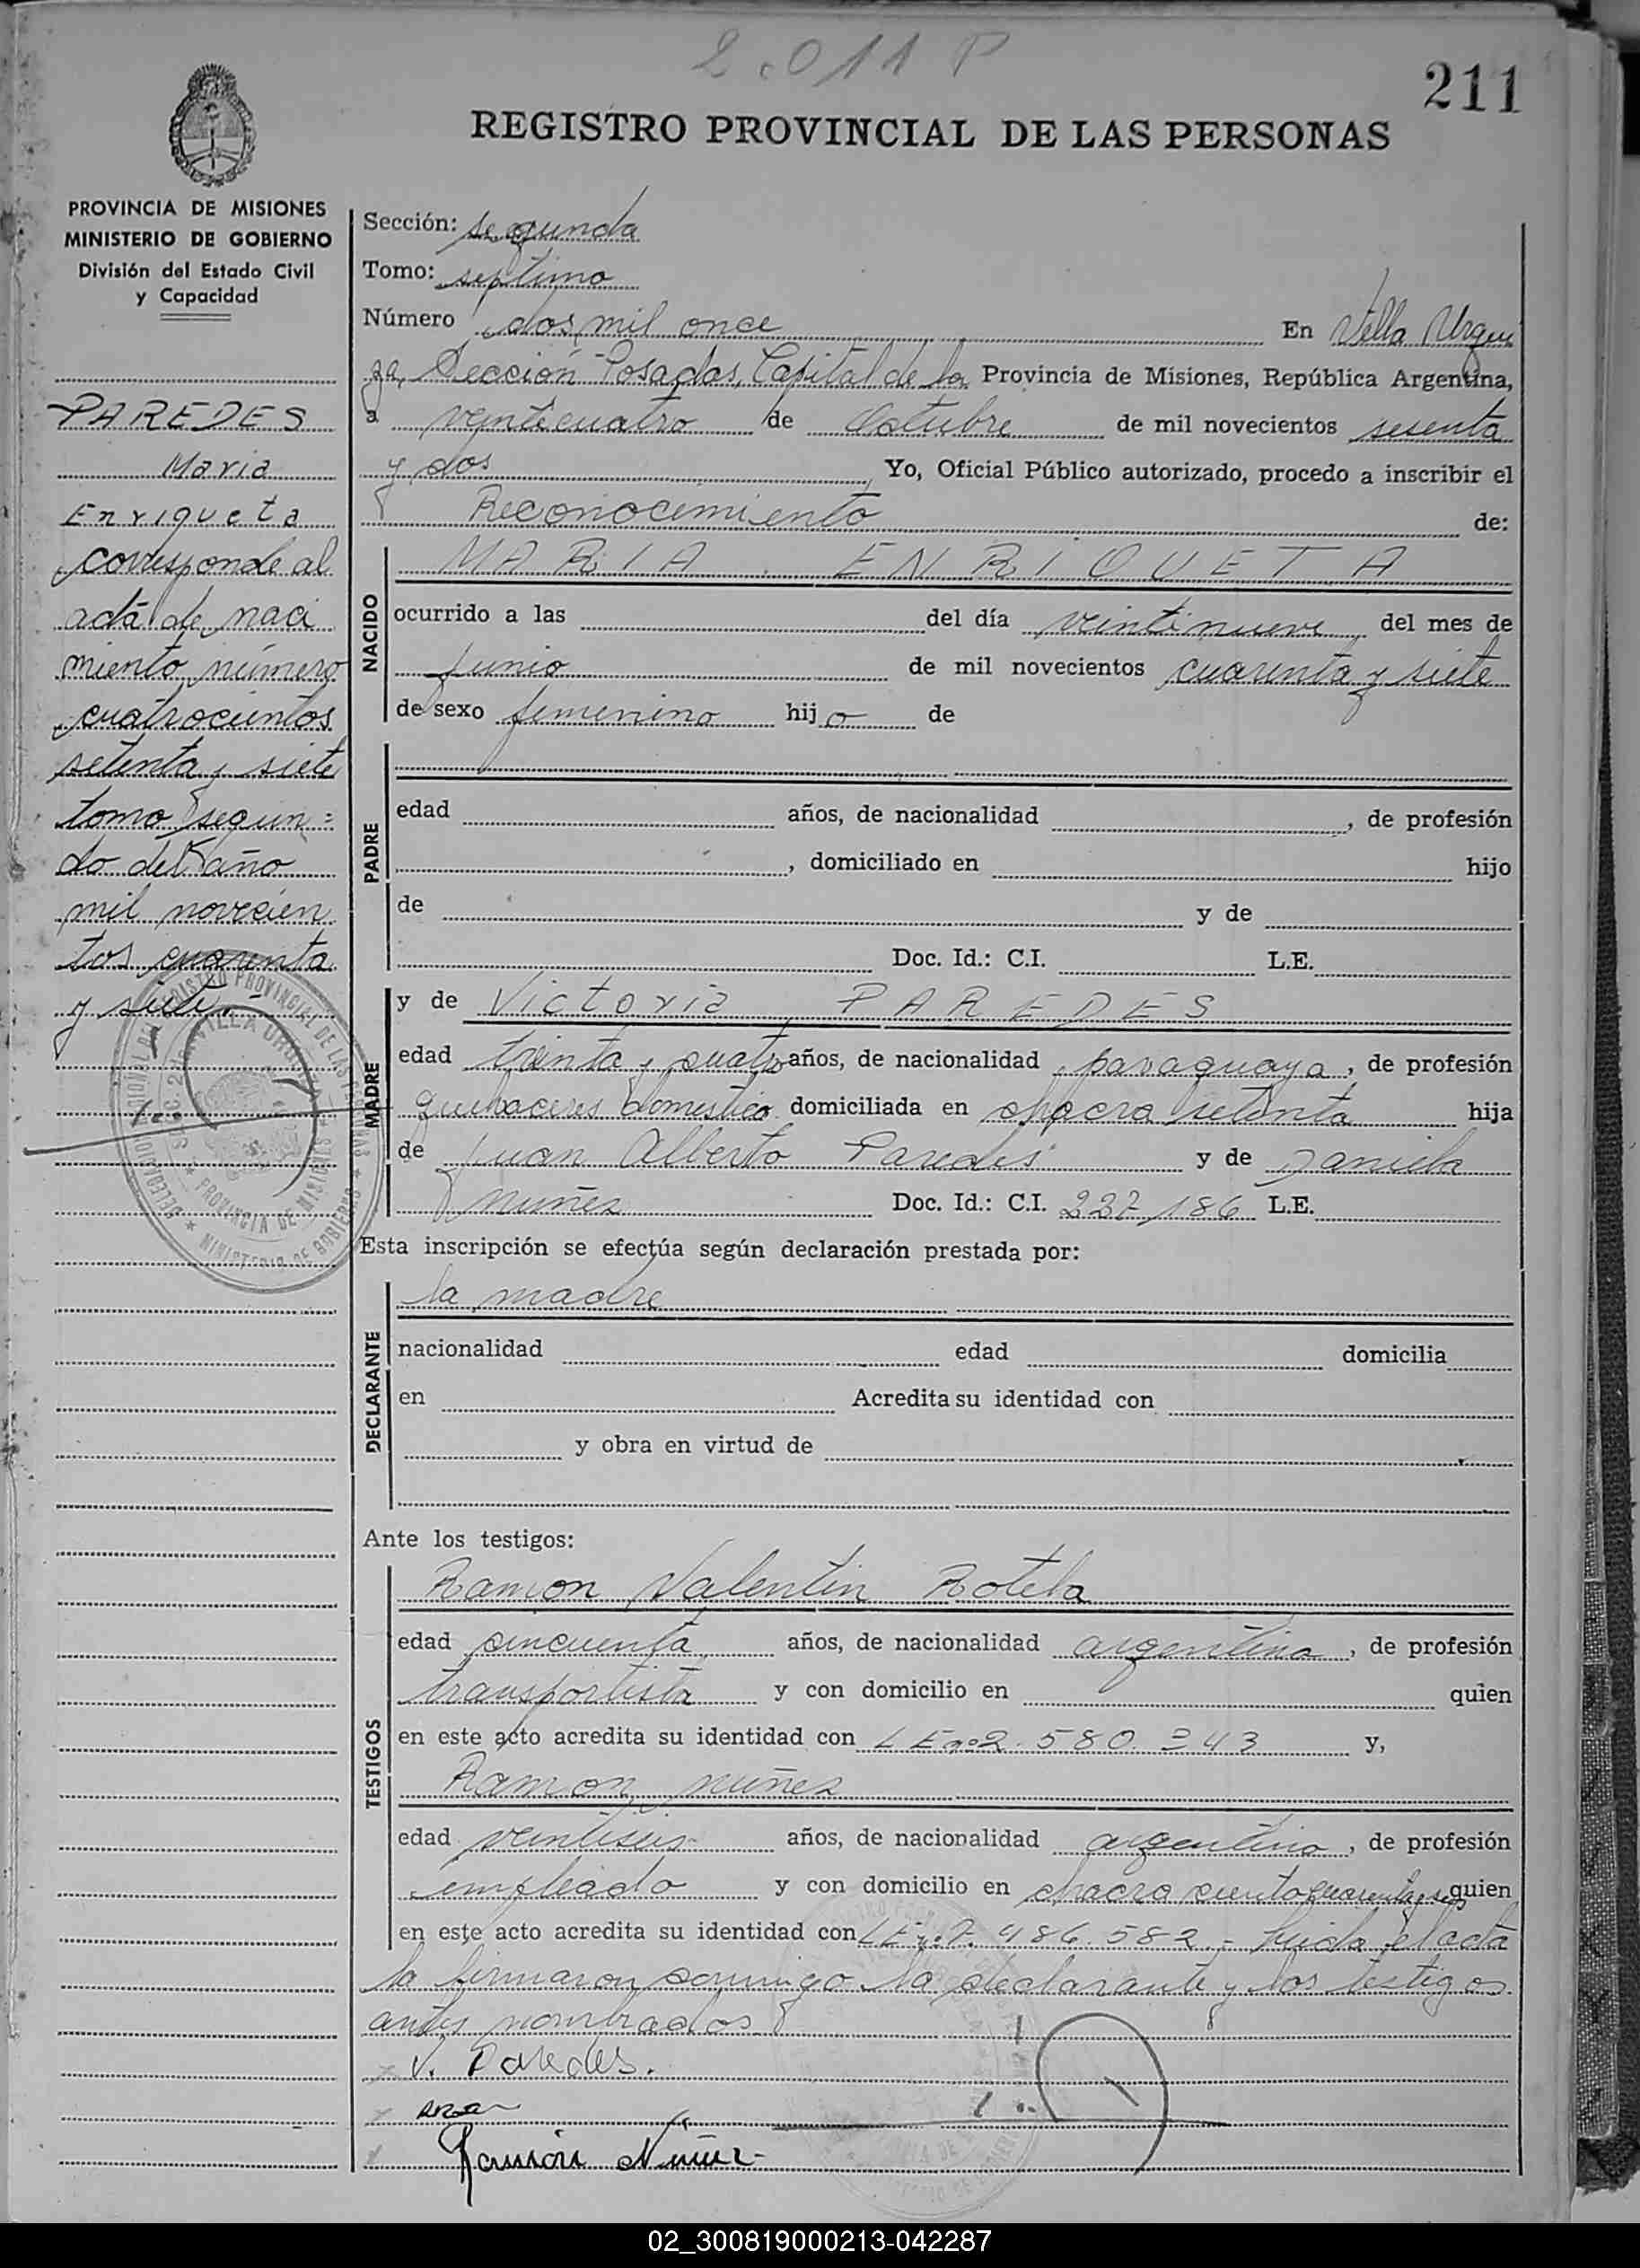 2.011 P
211
REGISTRO PROVINCIAL DE LAS PERSONAS
PROVINCIA DE MISIONES
MINISTERIO DE GOBIERNO
División del Estado Civil
y Capacidad
PAREDES
Maria
Enriqueta
corresponde al
actá de naci
miento número
cuatrocientos
setenta y siete
tomo segun=
do del año
mil novecien
tos cuarenta
y siete.-
Sección: segunda
Tomo: septimo
Número dos mil once En Villa Urqui
za, Sección Posadas, Capital de la Provincia de Misiones, República Argentina,
a veinticuatro de Octubre de mil novecientos sesenta
y dos Yo, Oficial Público autorizado, procedo a inscribir el
Reconocimiento de:
NACIDO
MARIA ENRIQUETA
ocurrido a las del día veintinueve del mes de
Junio de mil novecientos cuarenta y siete
de sexo femenino hija de
PADRE
edad años, de nacionalidad , de profesión
, domiciliado en hijo
de y de
Doc. Id.: C.I. L.E.
MADRE
y de Victoria PAREDES
edad treinta y cuatro años, de nacionalidad paraguaya, de profesión
quehaceres domestico domiciliada en chacra setenta hija
de Juan Alberto Paredes y de Daniela
Nuñez Doc. Id.: C.I. 227.186 L.E.
Esta inscripción se efectúa según declaración prestada por:
DECLARANTE
la madre
nacionalidad edad domicilia
en Acredita su identidad con
y obra en virtud de
Ante los testigos:
TESTIGOS
Ramon Valentin Rotela
edad cincuenta años, de nacionalidad argentina, de profesión
transportista y con domicilio en quien
en este acto acredita su identidad con L E nº 2.580.343 y,
Ramon nuñez
edad veintiseis años, de nacionalidad argentino, de profesión
empleado y con domicilio en chacra ciento cuarenta y seis quien
en este acto acredita su identidad con L E nº 7.486.582.- Leida el acta
la firmaron conmigo la declarante y los testigos
antes nombrados
V. Paredes.
Ramón Nuñez-
02_300819000213-042287